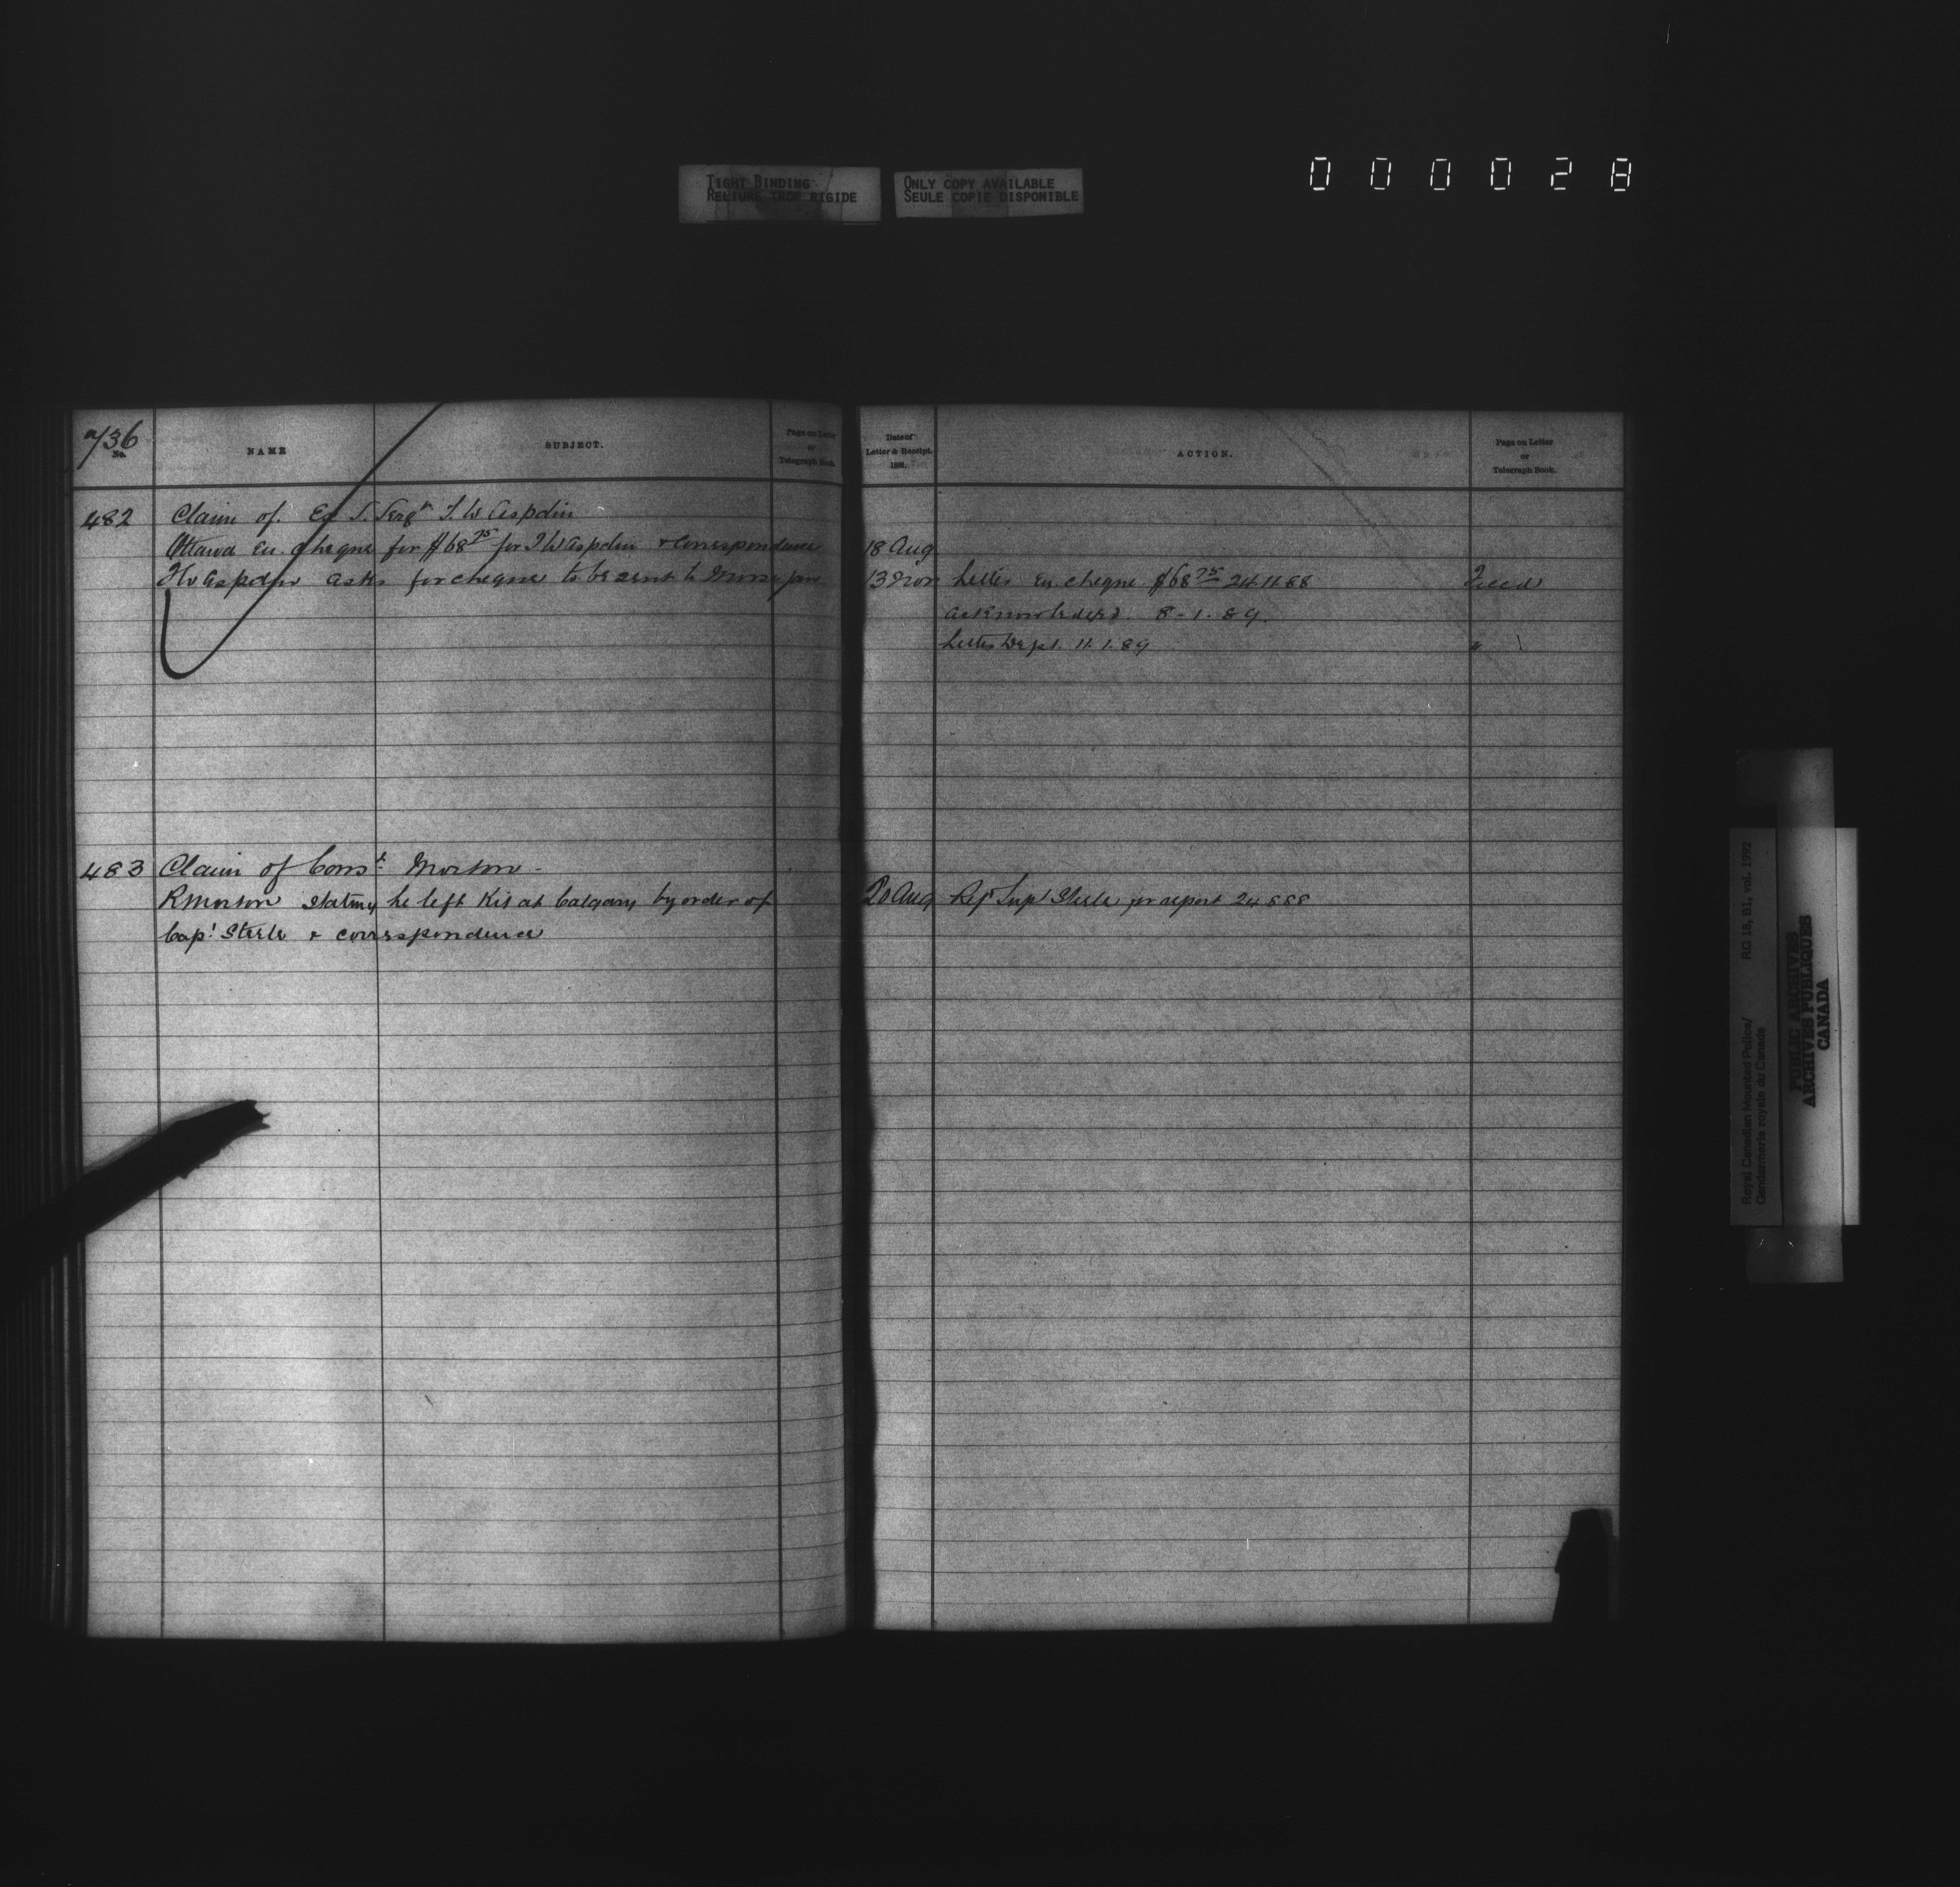 TIGHT BINDING
RELIURE TROP RIGIDE
ONLY COPY AVAILABLE
SEULE COPIE DISPONIBLE
000028
736
No.
NAME
SUBJECT.
Page on Letter
or
Telegraph Book.
Date of
Letter & Receipt.
188 .
ACTION.
Page on Letter
or
Telegraph Book.
482 Claim of Ex S. Sergt T. W Aspdin
Ottawa En. cheque for $68 75 for T W Aspdin & Correspondence 18 Aug
T W Aspdin asks for cheque to be sent to Moose jaw 13 Nov Letter En. cheque $68 75 24 11 88
Acknowledged 8-1.89.
Letter Dept. 11.1.89 "
483 Claim of Const. Morton -
R Morton stating he left Kit at Calgary by order of 20 Aug Ref Supt Steele for report 24 8 88
Capt Steele & correspondence
Royal Canadian Mounted Police/
Gendarmerie royale du Canada
RG 18, B1, vol. 1992
PUBLIC ARCHIVES
ARCHIVES PUBLIQUES
CANADA